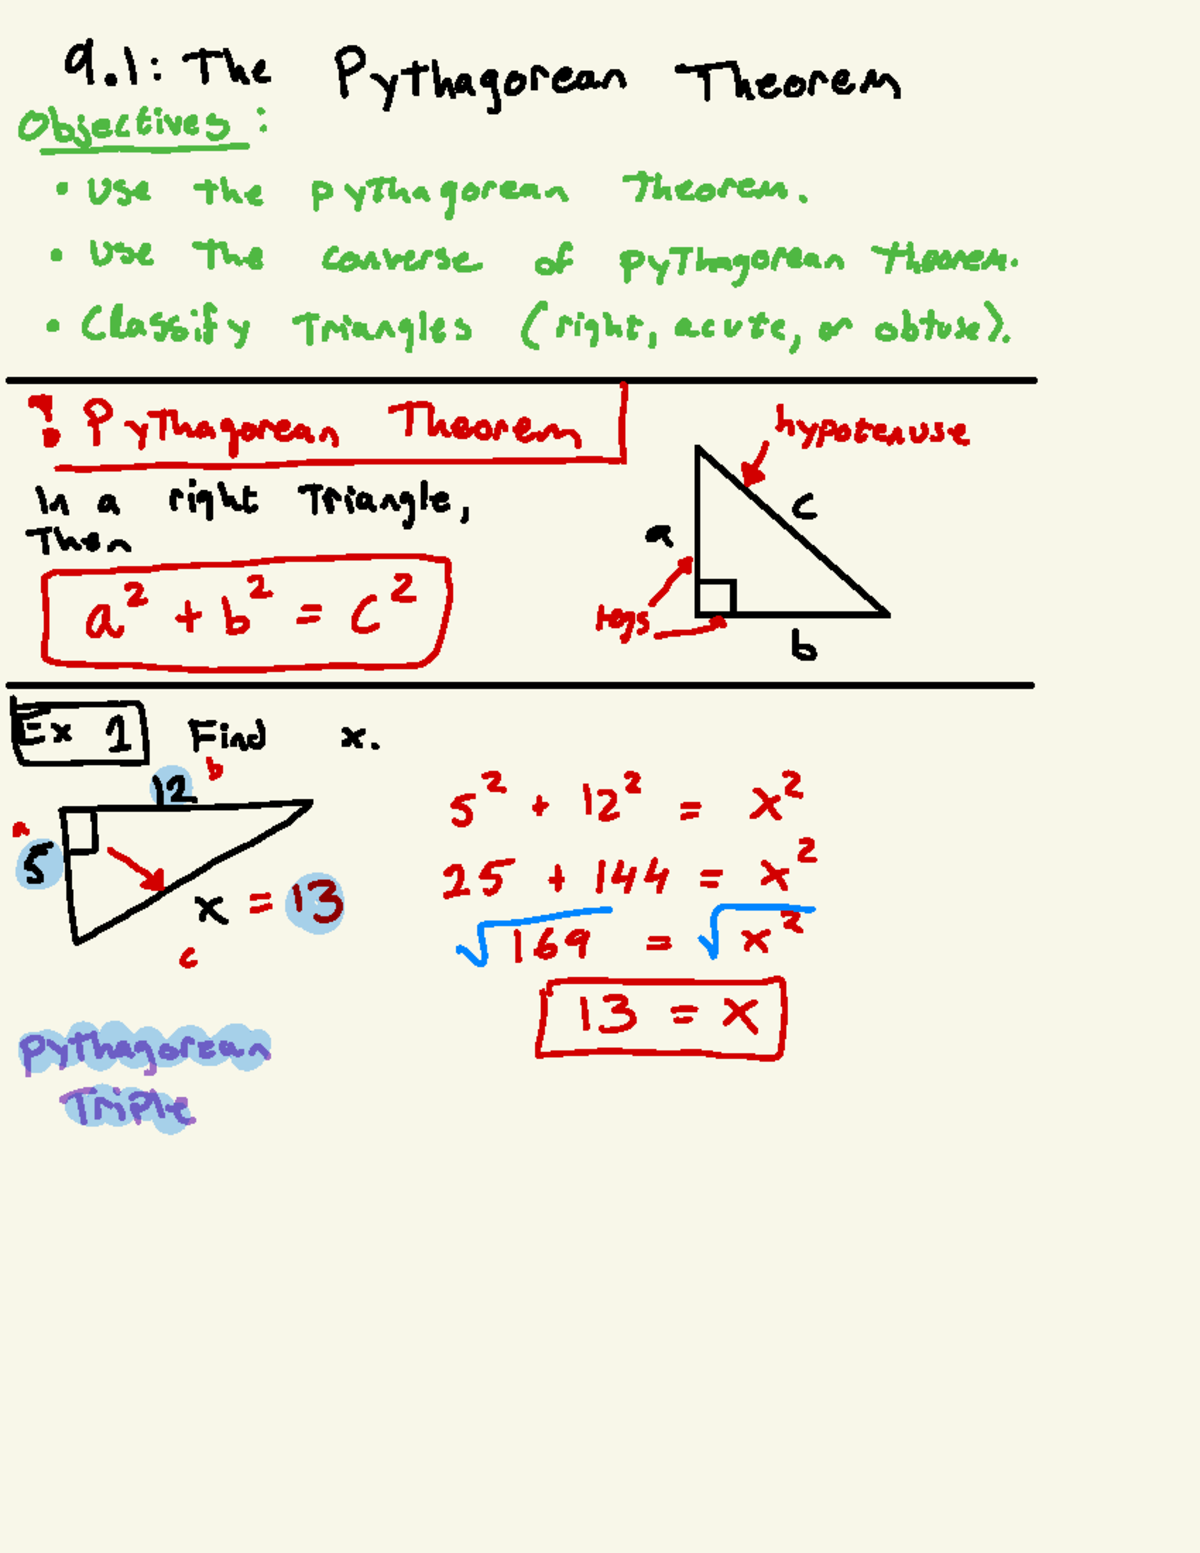 9.1: The Pythagorean Theorem
Objectives:
• Use the pythagorean Theorem.
• Use the converse of pythagorean theorem.
• Classify Triangles (right, acute, or obtuse).
! Pythagorean Theorem
hypotenuse
In a right Triangle,
Then
a² + b² = c²
a
c
legs
b
Ex 1 Find x.
12 b
a
5
x = 13
c
5² + 12² = x²
25 + 144 = x²
√169 = √x²
13 = x
Pythagorean
Triple